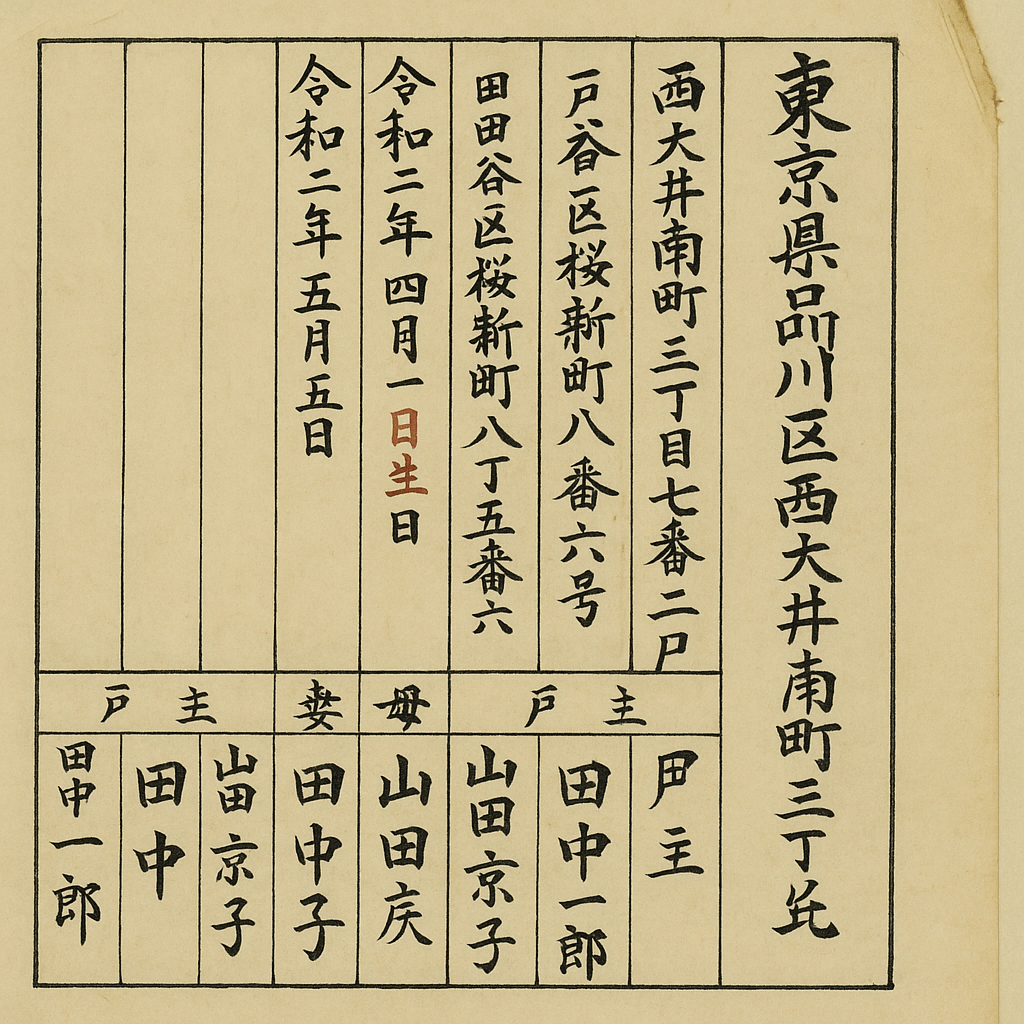 東京県品川区西大井南町三丁
西大井南町三丁目七番二戸
戸谷区桜新町八番六号
田田谷区桜新町八丁五番六
令和二年四月一日生日
令和二年五月五日
戸主
母
妻
戸主
戸主
田中一郎
山田京子
山田
田中子
山田京子
田中
田中一郎